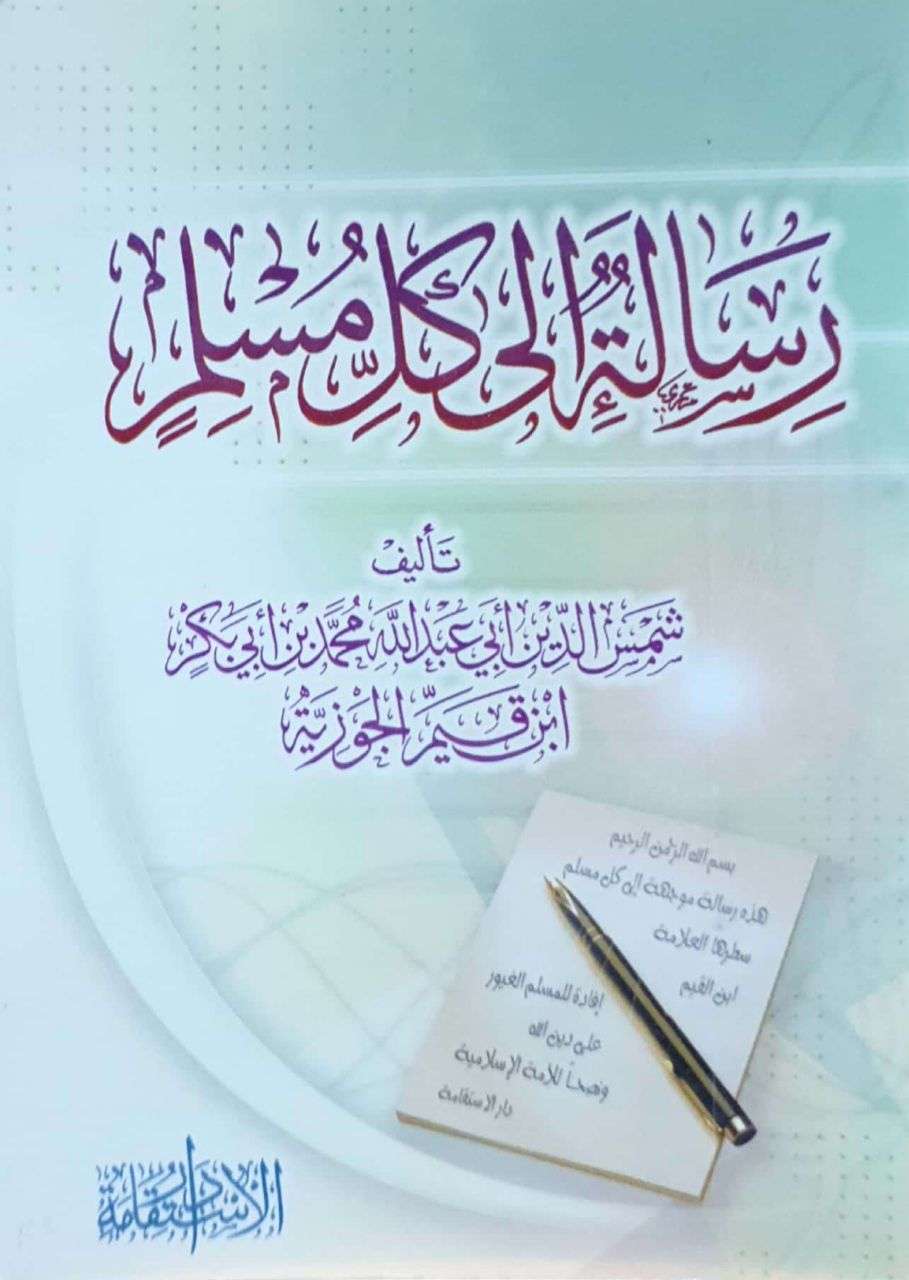 رِسَالَةٌ إِلَى كُلِّ مُسْلِمٍ
تَأليف
شَمْس الدِّين أبي عَبد اللَّه مُحمَّد بن أبي بَكر
ابن قَيِّم الجَوْزِيَّة
بسم الله الرحمن الرحيم
هذه رسالة موجهة إلى كل مسلم
سطرها العلامة
ابن القيم
إفادة للمسلم الغيور
على دين الله
ونصحاً للأمة الإسلامية
دار الاستقامة
دار الاستقامة